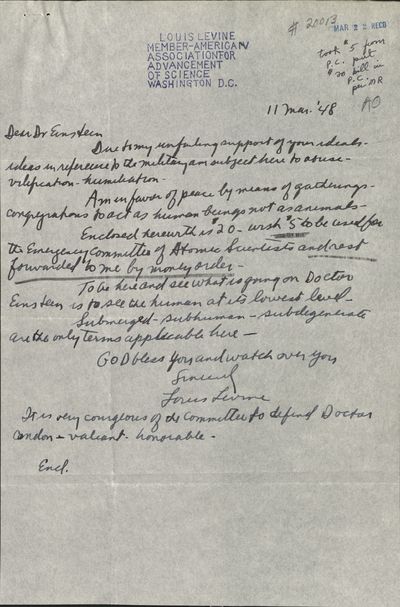 # 20013
MAR 22 RECD
LOUIS LEVINE
MEMBER-AMERICAN
ASSOCIATION FOR
ADVANCEMENT
OF SCIENCE
WASHINGTON D.C.
took $5 from
P.C. put
$20 bill in
P.C.
per DR
AO
11 Mar. '48
Dear Dr Einstein
Due to my unfailing support of your ideals-
ideas in reference to the military am subject here to abuse-
vilification- humiliation-
Am in favor of peace by means of gatherings-
congregations to act as human beings not as animals-
Enclosed herewith is $20- wish $5 to be used for
the Emergency Committee of Atomic Scientists and rest
forwarded to me by money order-
To be here and see what is going on Doctor
Einstein is to see the human at its lowest level-
Submerged- subhuman- subdegenerate
are the only terms applicable here-
GOD bless you and watch over you
Sincerely
Louis Levine
It is very courageous of the Committee to defend Doctor
Condon- valiant- honorable-
Encl.